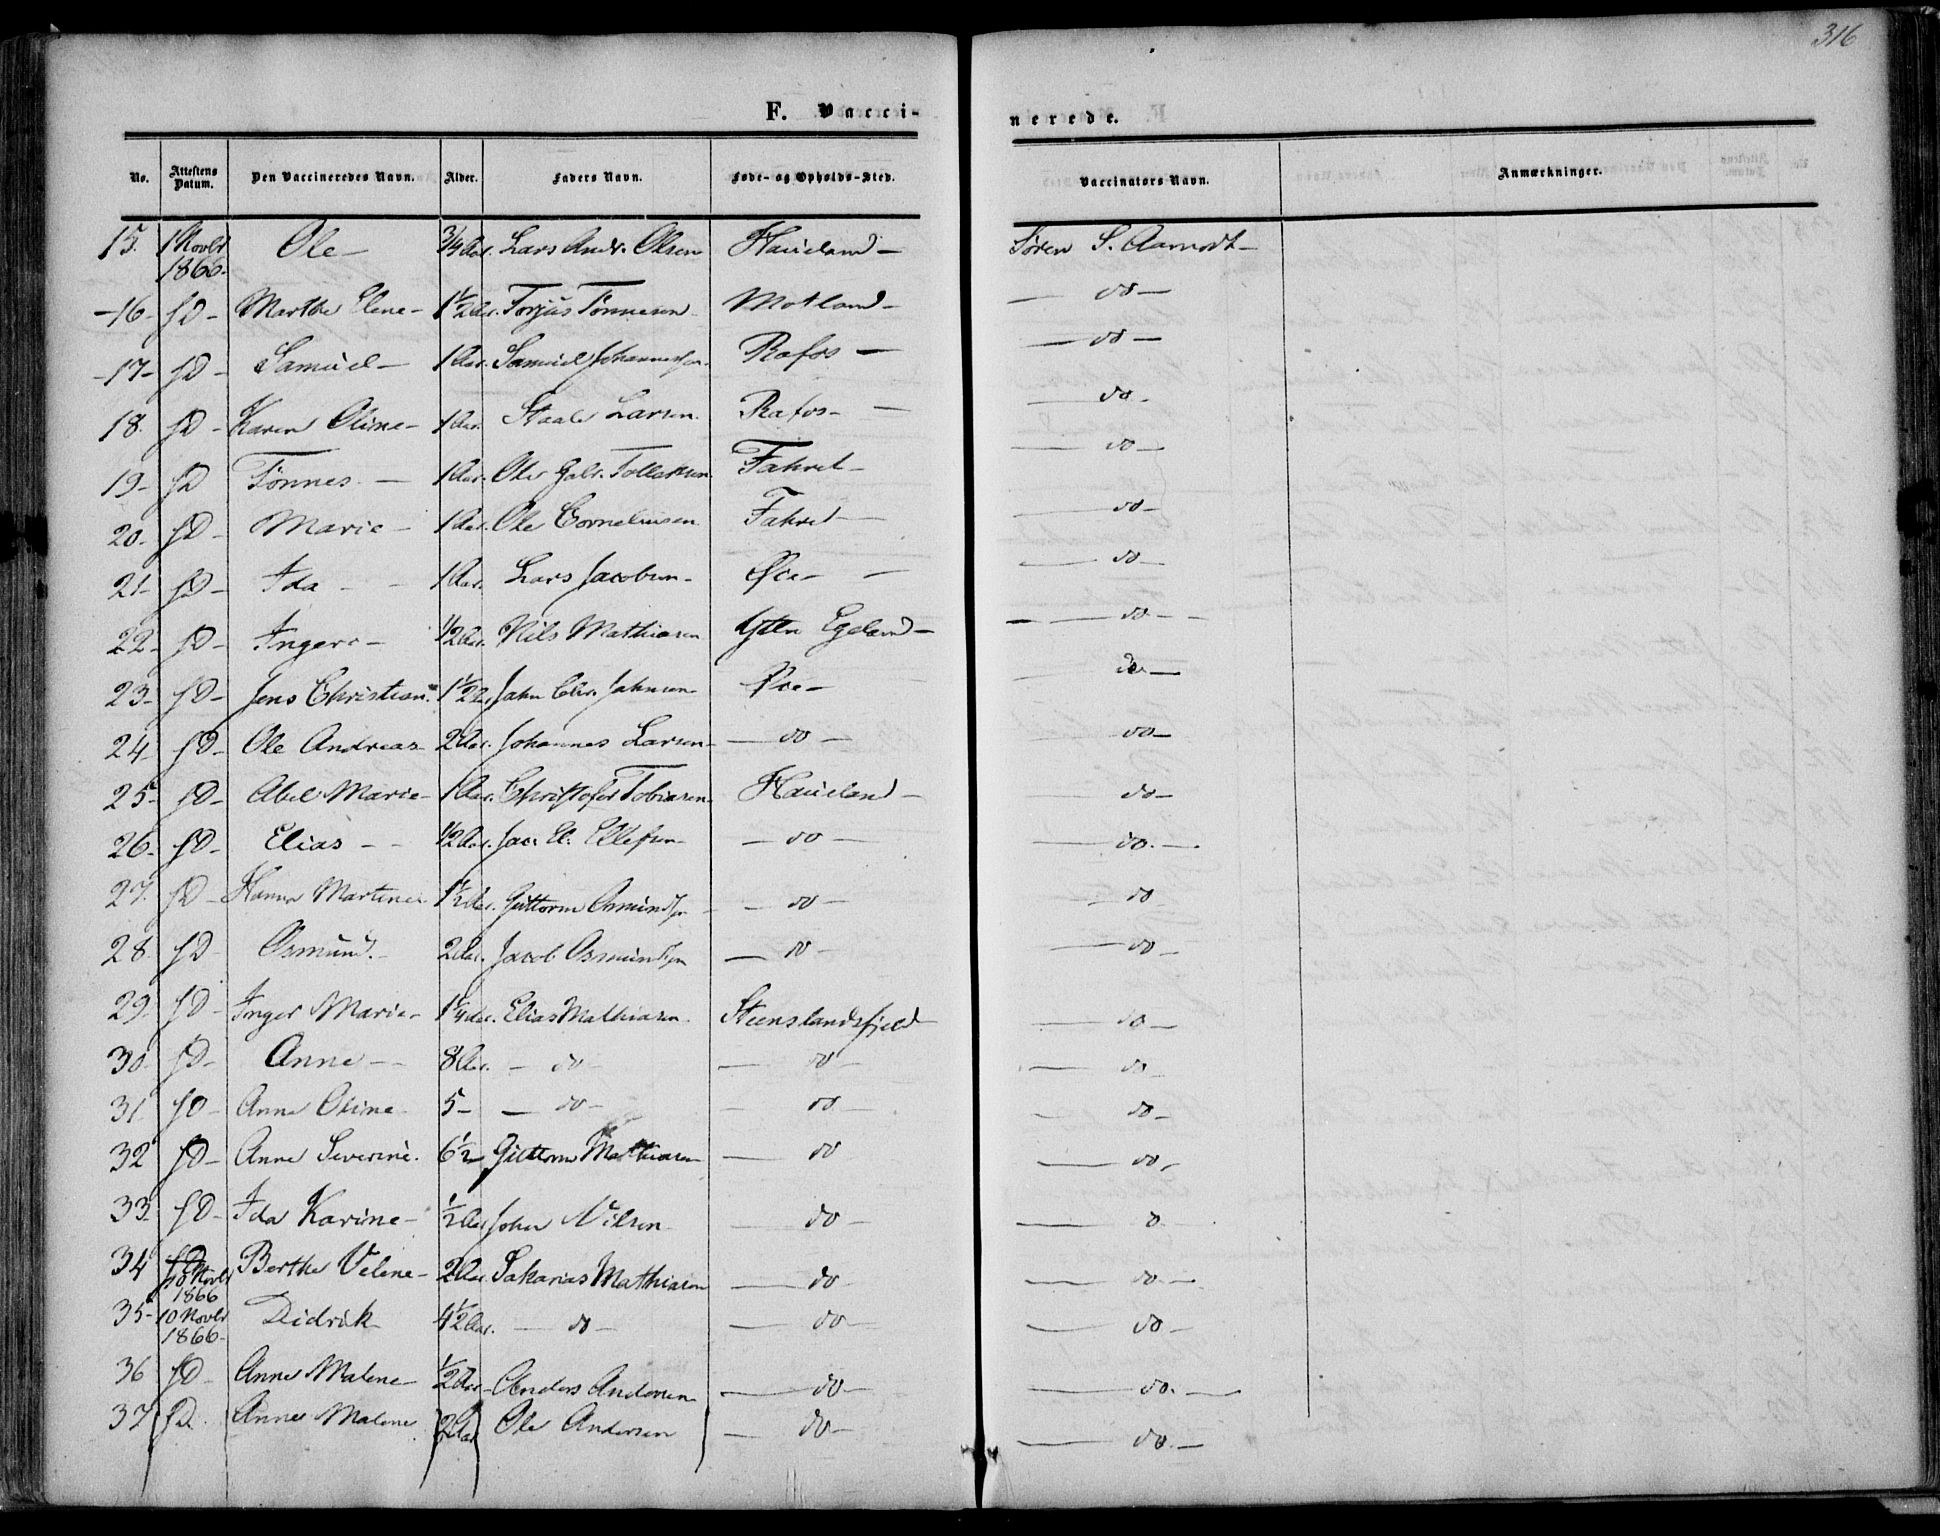 316
F. Vacci-
nerede.
No. Attestens Datum. Den Vaccineredes Navn. Alder. Faders Navn. Føde- og Opholds-Sted. Vaccinators Navn. Anmærkninger.
15. 1 Novbr 1866. Ole - 3/4 Aar. Lars Andr. Olsen Haueland - Søren S. Aamodt -
-16- sD - Marthe Elene - 1 1/2 Aar. Torjus Tønnesen Motland - — do —
-17- sD - Samuel - 1 Aar. Samuel Johannessen Rafos — — do —
18. sD - Karen Oline - 1 Aar. Staale Larsen. Rafos - — — do -
19- sD Tønnes - 1 Aar. Ole Gabr. Tollaksen Faket - — do —
20- sD - Marie - 1 Aar. Ole Corneliusen Faket - — do —
21- sD - Ida - - 1 Aar. Lars Jacobsen - Øie - — — do —
22- sD - Ingere - 1/2 Aar. Nils Mathiasen Ytre Egeland - — do —
23- sD - Jens Christian. 1 1/2 Aar Jahn Chr. Jahnsen - Øie - — do —
24- sD - Ole Andreas - 2 Aar. Johannes Larsen - — do — — do —
25- sD - Abel Marie - 1 Aar. Christofer Tobiasen - Haueland - — do —
26- sD - Elias - - 1/2 Aar. Jac. El. Ellefsen - — do — — do. —
27. sD - Hanna Martine 1 1/2 Aar. Guttorm Osmundsen - — do — — do
28. sD Osmund. - 2 Aar. Jacob Osmundsen — do — — do —
29. sD - Inger Marie - 1 1/4 Aar. Elias Mathiasen. Steenslandsfjeld — do —
30. sD - Anne - - 8 Aar. - do - — do — — do —
31 sD - Anne Oline - 5 - — do - — do — — do —
32 sD - Anne Severine. 6 1/2 - Guttorm Mathiasen — do — do -
33- sD - Ida Karine - 1/2 Aar John Nilsen — do — — do
34 18 Novbr 1866 Berthe Velene - 2 Aar Sakarias Mathiasen — do — do —
35- 10 Novbr 1866- Didrik 4 1/2 Aar. — do — — do — — do —
36 sD - Anne Malene - 1/2 Aar - Anders Andersen — do — — do. —
37 sD. Anne Malene 2 Aar Ole Andersen — do — — do. —